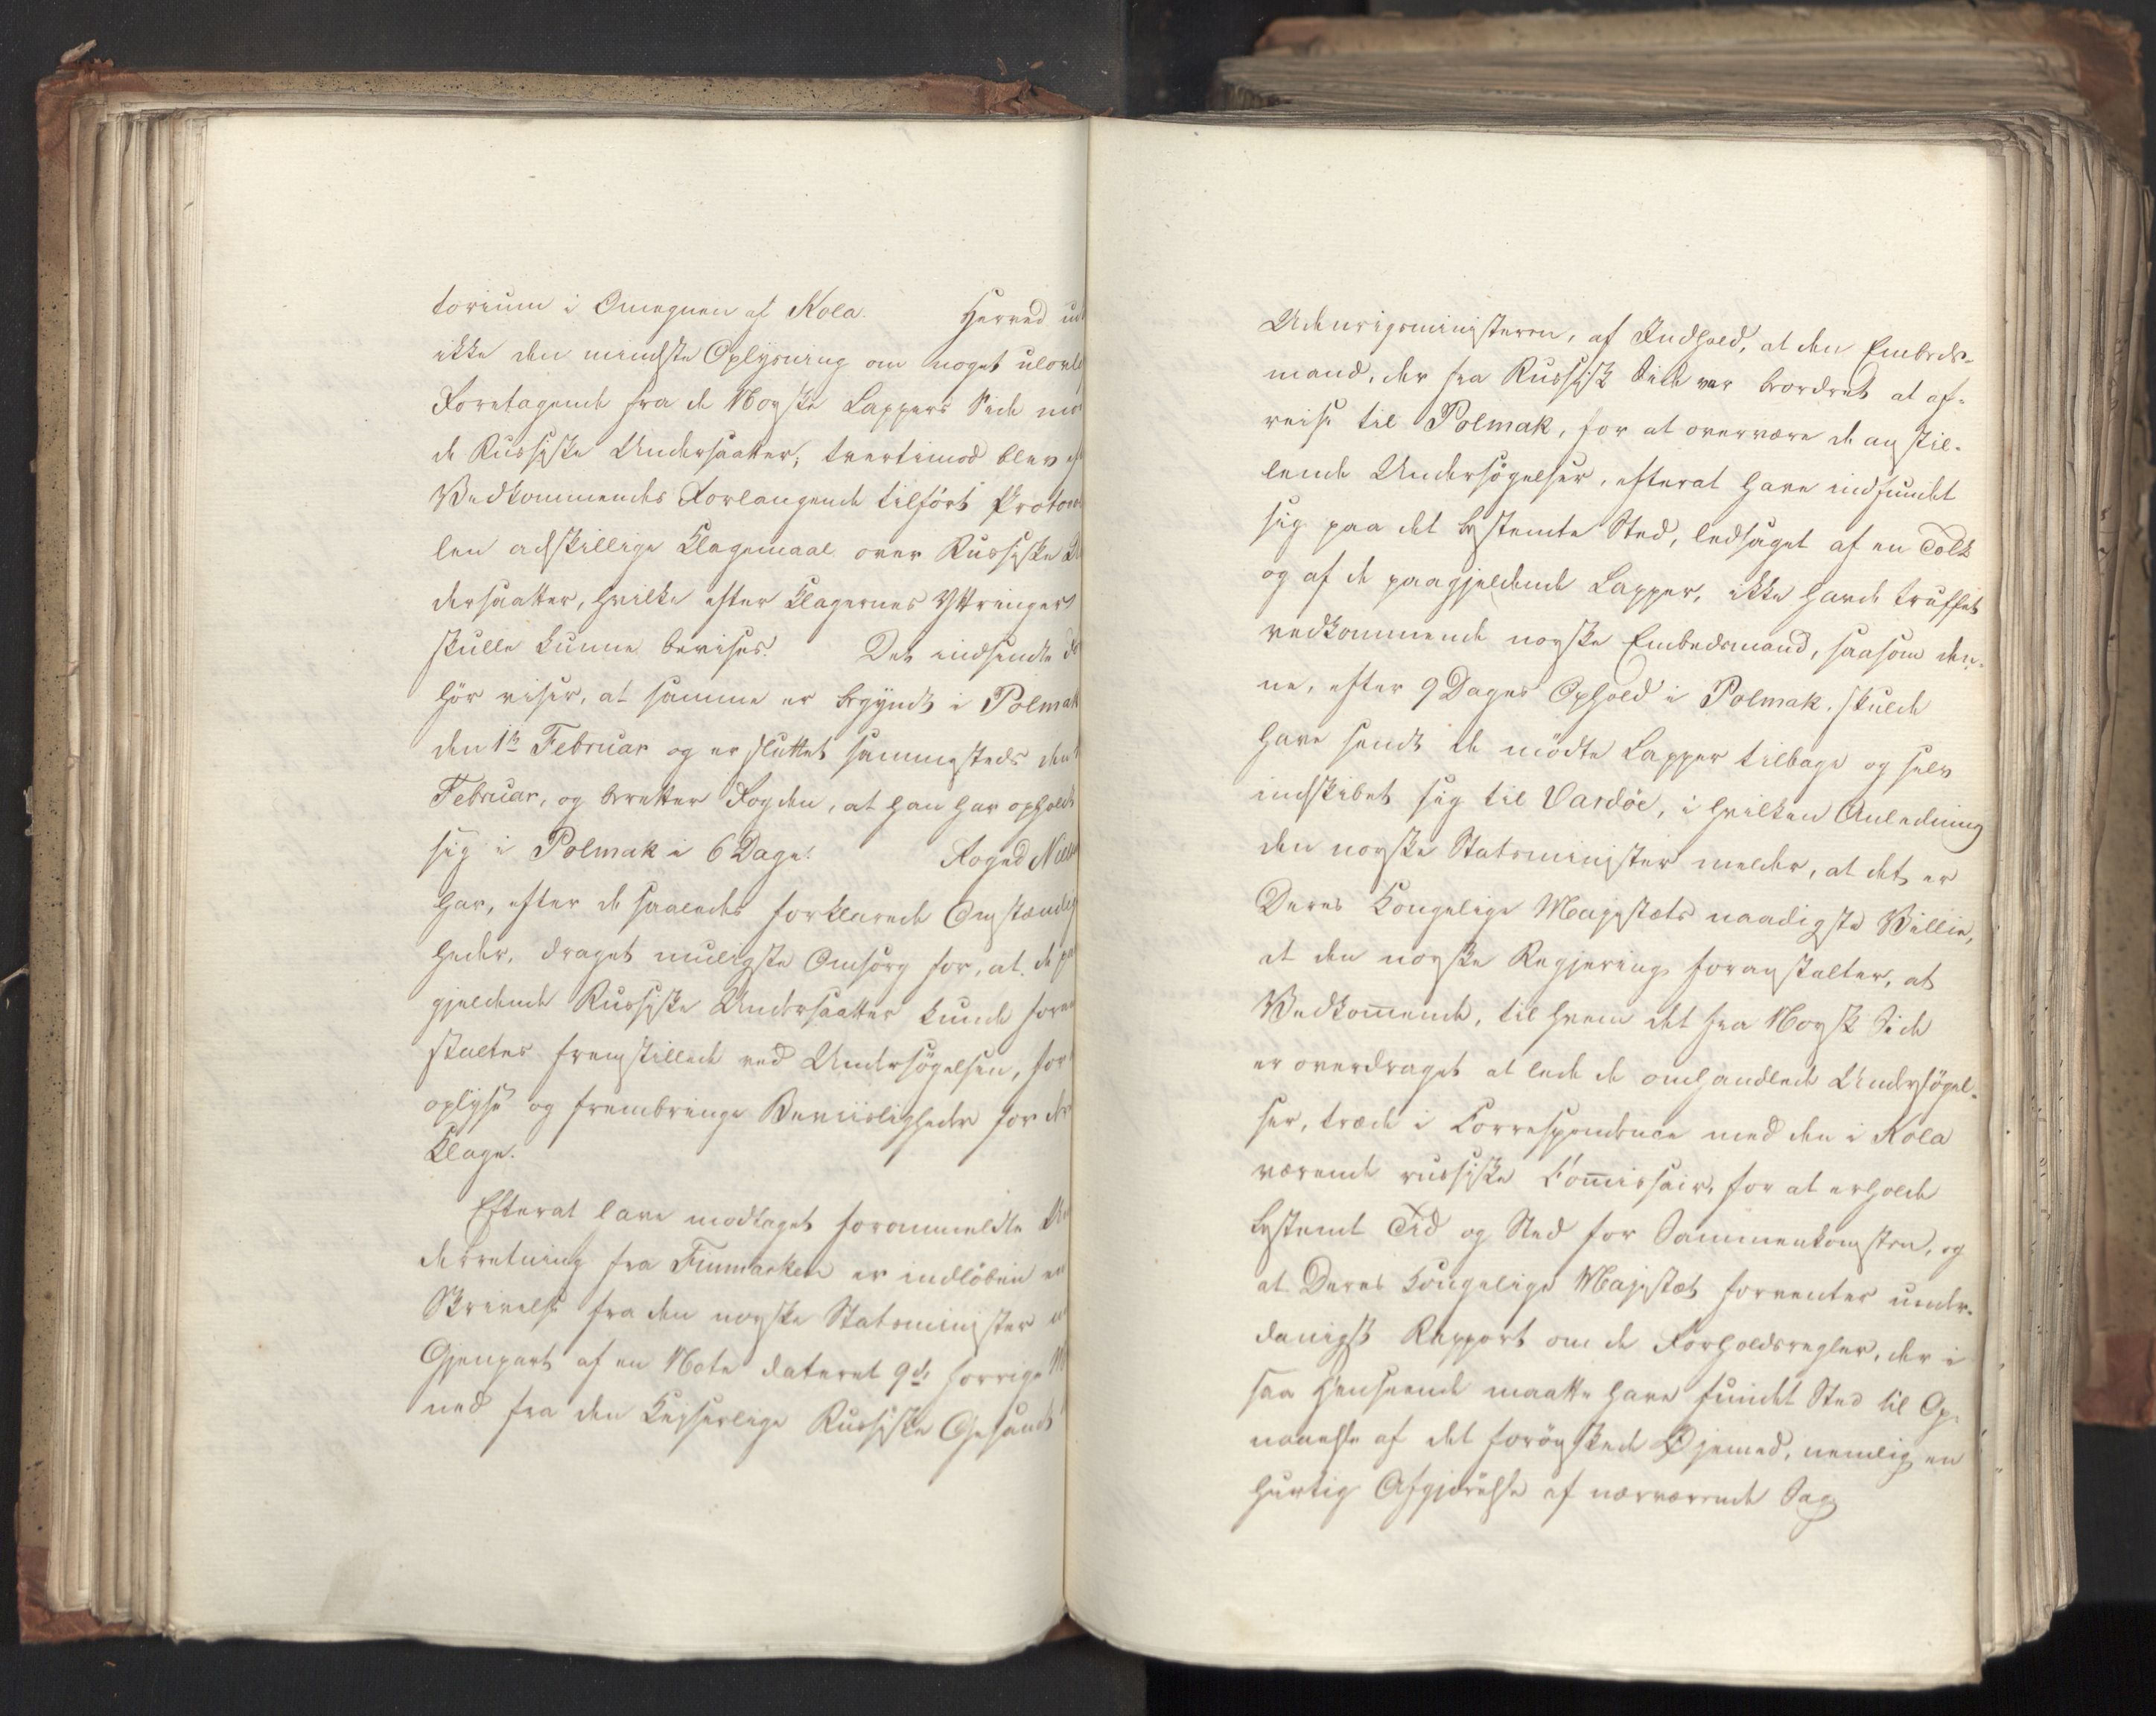 torium i Omegnen af Kola. Herved
ikke den mindste Oplysning om noget ulovl
Foretagende fra de Norske Lappers Side mo
de Russiske Undersaatter; tvertimod blev ef
Vedkommendes Forlangende tilført Protoco
len adskillige Klagemaal over Russiske
dersaatter, hvilke efter Klagernes Yttringer
skulle kunne bevises. Det indsendte
hör viser, at samme er begyndt i Polmak
den 1ste Februar og er sluttet sammesteds den
Februar, og beretter Fogden, at han har opholdt
sig i Polmak i 6 Dage. Foged
har, efter de saaledes forklarede Omstændig
heder, draget muligste Omsorg for, at de pa
gjeldende Russiske Undersaatter kunde foran
staltes fremstillede ved Undersögelsen, for
oplyse og frembringe Beviisligheder for der
Klage.
Efterat have modtaget forommeldte Un
derretning fra Finmarken er indlöben en
Skrivelse fra den norske Statsminister
Gjenpart af en Note dateret 9de forrige
ned fra den Keyserlige Russiske Gesandt
Udenrigsministeren, af Indhold, at den Embeds-
mand, der fra Russisk Side var beordret at af-
reise til Polmak, for at overvære de anstil-
lende Undersögelser, efterat have indfundet
sig paa det bestemte Sted, ledsaget af en Tolk
og af de paagjeldende Lapper, ikke havde truffet
vedkommende norske Embedsmand, saasom den-
ne, efter 9 Dages Ophold i Polmak, skulde
have sendt de mödte Lapper tilbage og selv
indskibet sig til Vardöe, i hvilken Anledning
den norske Statsminister melder, at det er
Deres Kongelige Majestæts naadigste Villie,
at den norske Regjering foranstalter, at
Vedkom̅ende, til hvem det fra Norsk Side
er overdraget at lede de omhandlede Undersögel-
ser, træde i Correspondence med den i Kola
værende russiske Com̅issair, for at erholde
bestemt Tid og Sted for Sammenkomsten, og
at Deres Kongelige Majestæt forventer under-
danigst Rapport om de Forholdsregler, der i
saa Henseende maatte have fundet Sted til Op-
naaelse af det forönskede Öjemed, nemlig en
hurtig Afgjörelse af nærværende Sag